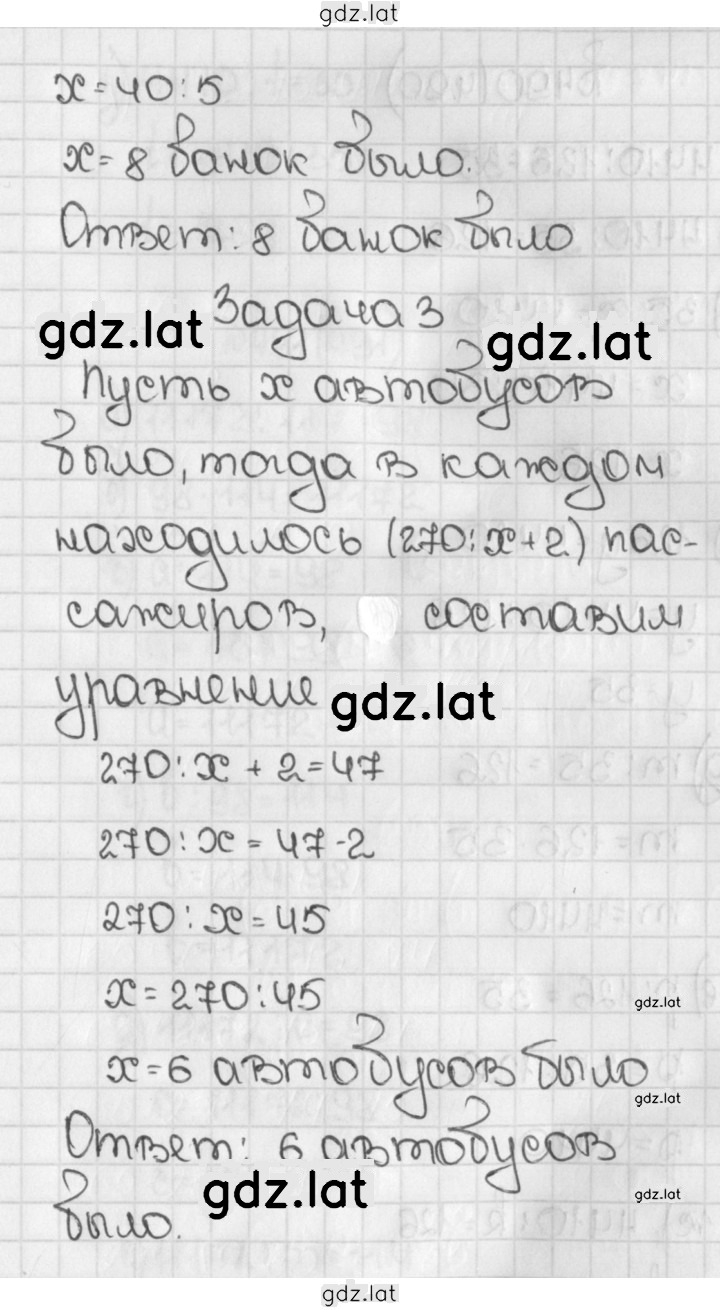 gdz.lat
x=40:5
x=8 банок было.
Ответ: 8 банок было
Задача 3
gdz.lat
gdz.lat
Пусть x автобусов
было, тогда в каждом
находилось (270:x+2) пас-
сажиров, составим
уравнение
gdz.lat
270:x + 2=47
270:x = 47-2
270:x=45
x=270:45
gdz.lat
x=6 автобусов было
gdz.lat
Ответ: 6 автобусов
gdz.lat
gdz.lat
было.
gdz.lat